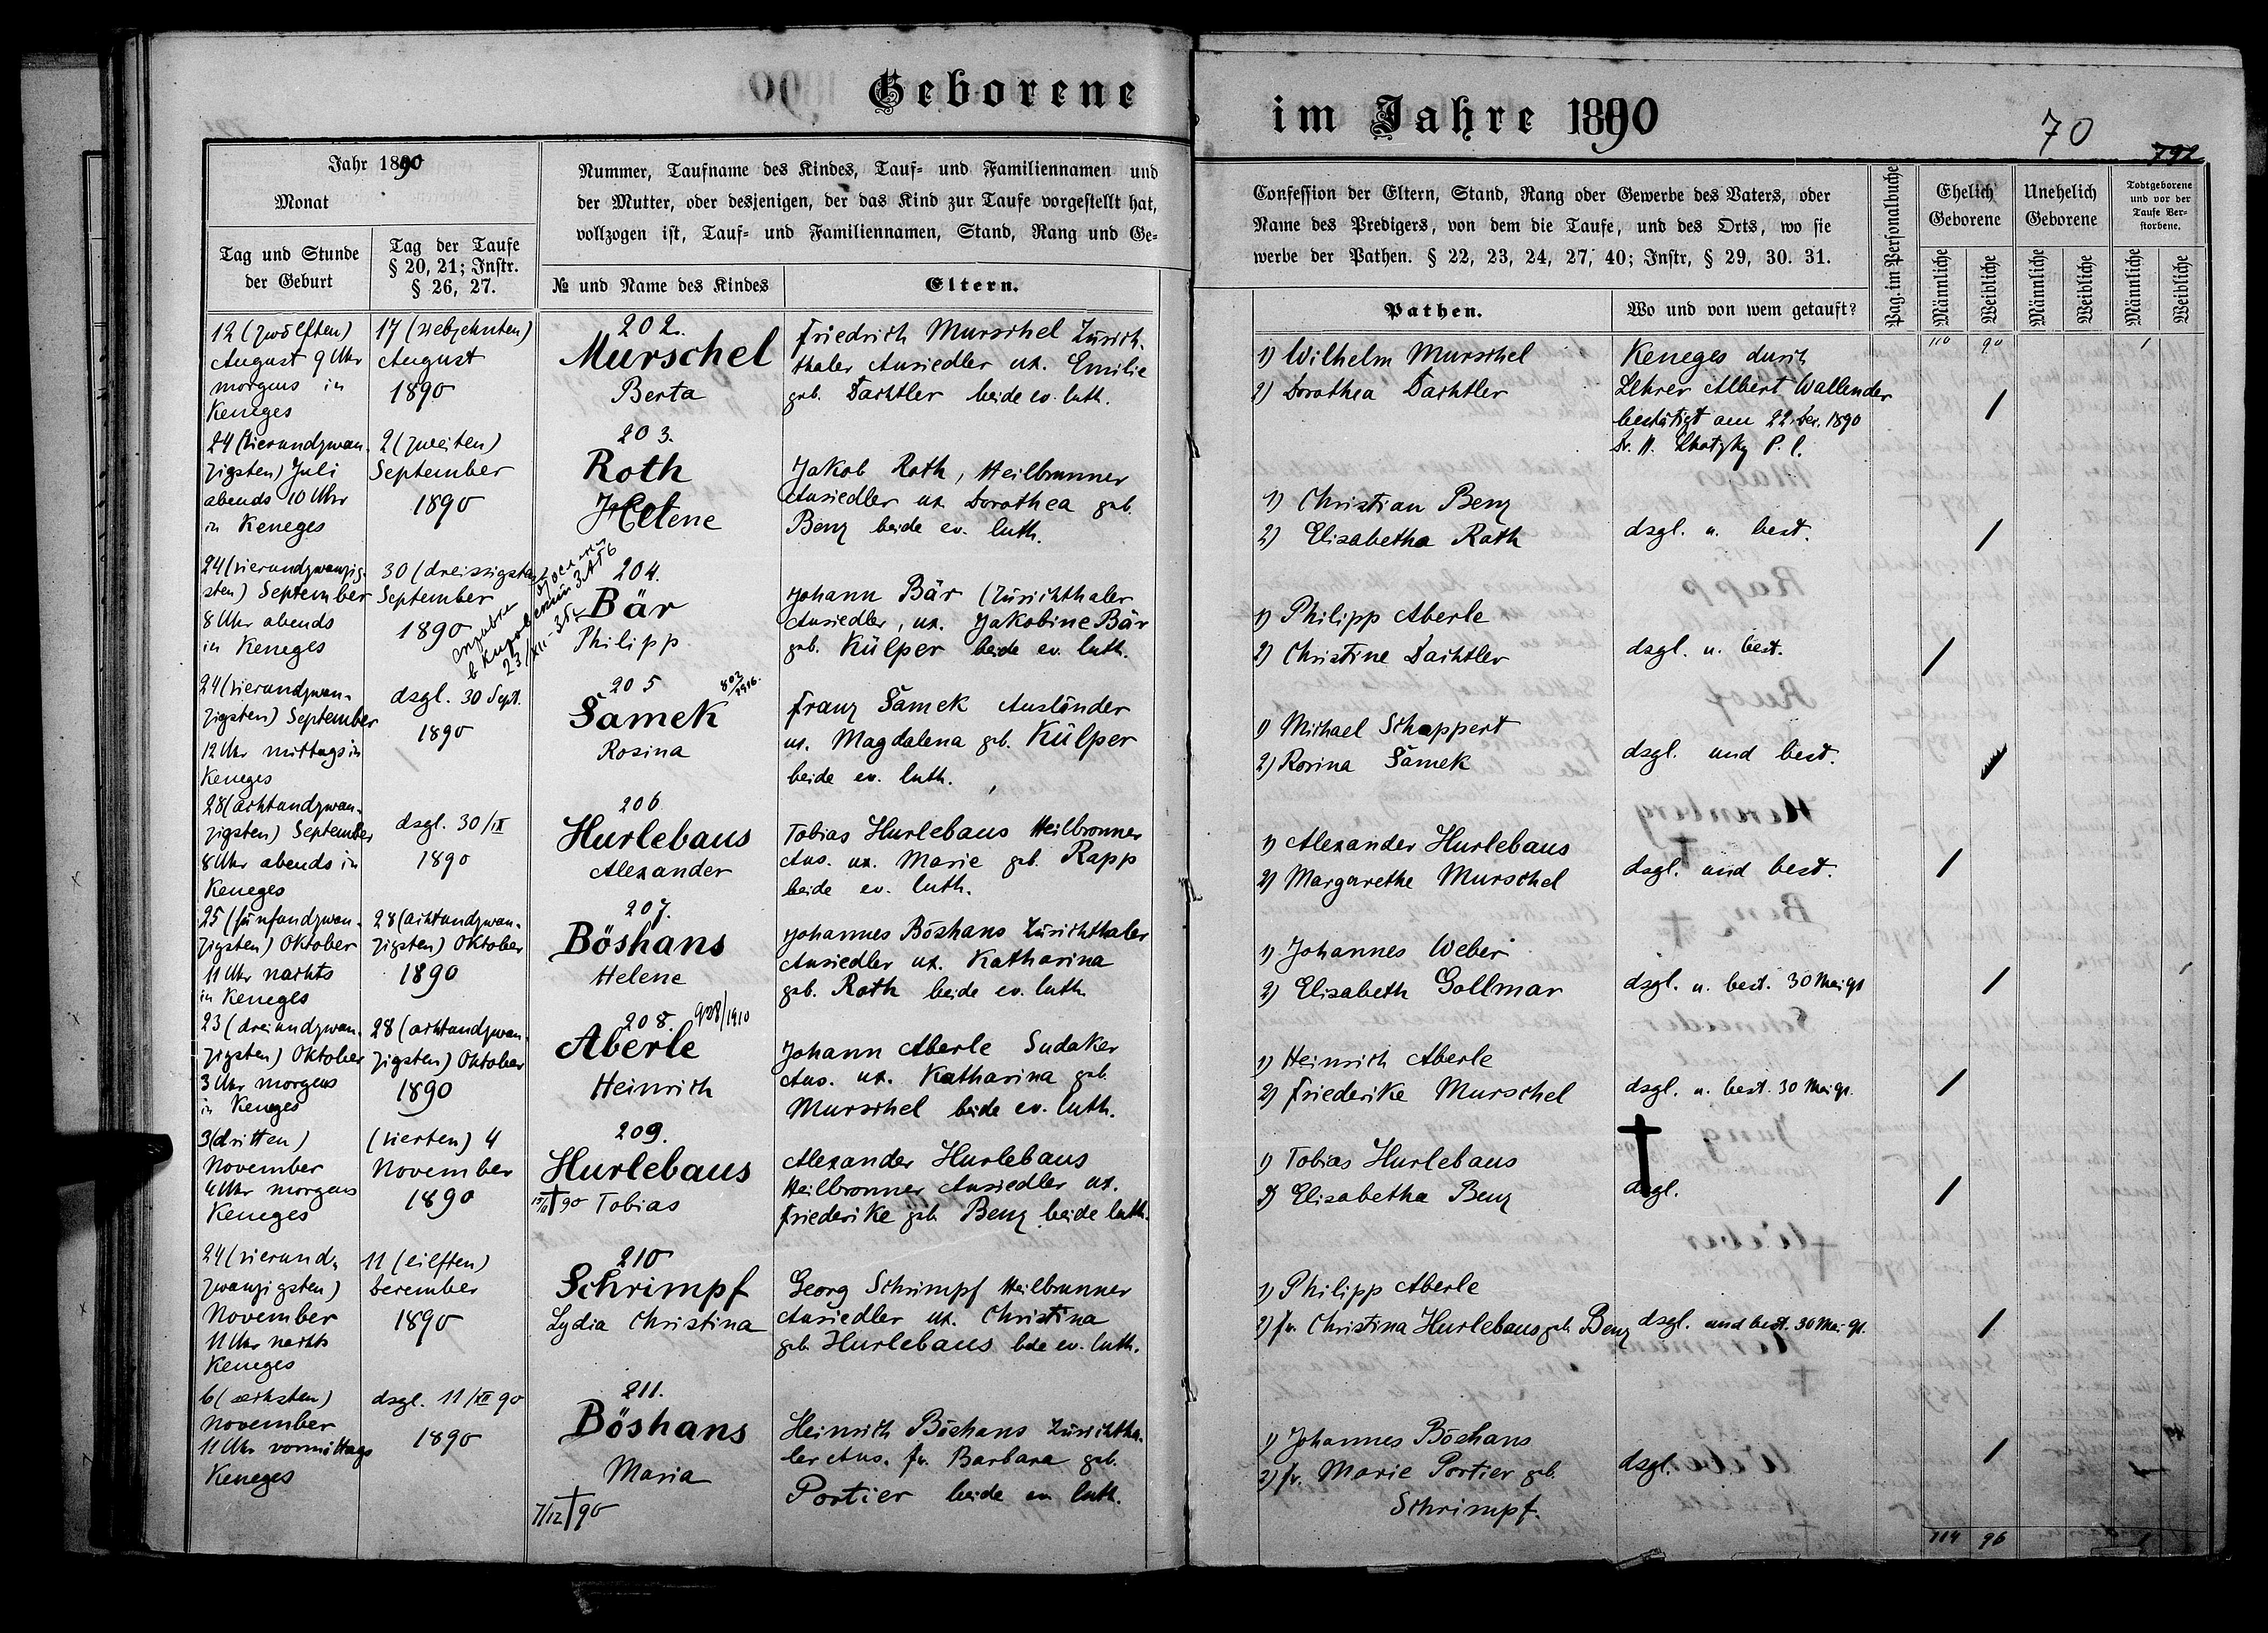 Geborene
im Jahre 1890
70
792
Jahr 1890
Monat
Tag und Stunde
der Geburt
Tag der Taufe
§ 20, 21; Instr.
§ 26, 27.
Nummer, Taufname des Kindes, Tauf- und Familiennamen und
der Mutter, oder desjenigen, der das Kind zur Taufe vorgestellt hat,
vollzogen ist, Tauf- und Familiennamen, Stand, Rang und Ge-
№ und Name des Kindes
Eltern.
Confession der Eltern, Stand, Rang oder Gewerbe des Vaters, oder
Name des Predigers, von dem die Taufe, und des Orts, wo sie
werbe der Pathen. § 22, 23, 24, 27, 40; Instr, § 29, 30. 31.
Pathen.
Wo und von wem getauft?
Pag. im Personalbuche
Ehelich
Geborene
Unehelich
Geborene
Todtgeborene
und vor der
Taufe Ver-
storbene.
Männliche
Weibliche
Männliche
Weibliche
Männliche
Weibliche
110 90 1
12 (zwölften)
August 9 Uhr
morgens in
Keneges
17 (siebzehnten)
August
1890
202.
Murschel
Berta
Friedrich Murschel Zürich-
thaler Ansiedler ux. Emilie
geb. Dachtler beide ev. luth.
1) Wilhelm Murschel
2) Dorothea Dachtler
Keneges durch
Lehrer Albert Wallender
bestätigt am 22. Dec. 1890
Dr. H. Lhotzky P. l.
/
24 (vierundzwan-
zigsten) Juli
abends 10 Uhr
in Keneges
2 (zweiten)
September
1890
203.
Roth
Helene
Jakob Roth, Heilbrunner
Ansiedler ux. Dorothea geb.
Benz beide ev. luth.
1) Christian Benz
2) Elisabetha Roth
dsgl. u. best.
/
24 (vierundzwanzig-
sten) September
8 Uhr abends
in Keneges
30 (dreissigsten)
September
1890
справка
23/XII-35
204.
Bär
Philipp
Johann Bär (Zürichthaler
Ansiedler, ux. Jakobine Bär
geb. Külper beide ev. luth.
1) Philipp Aberle
2) Christine Dachtler
dsgl. u. best.
/
24 (vierundzwan-
zigsten) September
12 Uhr mittags in
Keneges
dsgl. 30 Sept.
1890
205
803/1916.
Šamek
Rosina
Franz Šamek Ausländer
ux. Magdalena geb. Külper
beide ev. luth.
1) Michael Schappert
2) Rosina Šamek
dsgl. und best.
/
28 (achtundzwan-
zigsten) September
8 Uhr abends in
Keneges
dsgl. 30/IX
1890
206
Hurlebaus
Alexander
Tobias Hurlebaus Heilbronner
Ans. ux. Marie geb. Rapp
beide ev. luth.
1) Alexander Hurlebaus
2) Margarethe Murschel
dsgl. und best.
/
25 (fünfundzwan-
zigsten) Oktober
11 Uhr nachts
in Keneges
28 (achtundzwan-
zigsten) Oktober
1890
207.
Böshans
Helene
Johannes Böshans Zürichthaler
Ansiedler ux. Katharina
geb. Roth beide ev. luth.
1) Johannes Weber
2) Elisabeth Gollmar
dsgl. u. best. 30 Mai 91
/
23 (dreiundzwan-
zigsten) Oktober
3 Uhr morgens
in Keneges
28 (achtundzwan-
zigsten) Oktober
1890
208. 928/1910
Aberle
Heinrich
Johann Aberle Sudaker
Ans. ux. Katharina geb.
Murschel beide ev. luth.
1) Heinrich Aberle
2) Friederike Murschel
dsgl. u. best. 30 Mai 91.
/
3 (dritten)
November
4 Uhr morgens
Keneges
(vierten) 4
November
1890
209.
Hurlebaus
† 90 Tobias
Alexander Hurlebaus
Heilbronner Ansiedler ux.
Friederike geb. Benz beide luth.
1) Tobias Hurlebaus
2) Elisabetha Benz
†
dsgl.
/
24 (vierund-
zwanzigsten)
November
11 Uhr nachts
Keneges
11 (eilften)
December
1890
210
Schrimpf
Lydia Christina
Georg Schrimpf Heilbrunner
Ansiedler ux. Christina
geb. Hurlebaus bde ev. luth.
1) Philipp Aberle
2) fr. Christina Hurlebaus geb. Benz
dsgl. und best. 30 Mai 91.
/
6 (sechsten)
November
11 Uhr vormittags
Keneges
dsgl. 11/XII 90
1890
211.
Böshans
Maria
7/12 † 90
Heinrich Böshans Zürichtha-
ler Ans. fr. Barbara geb.
Portier beide ev. luth.
1) Johannes Böshans
2) fr. Marie Portier geb.
Schrimpf.
dsgl.
/
114 96 1